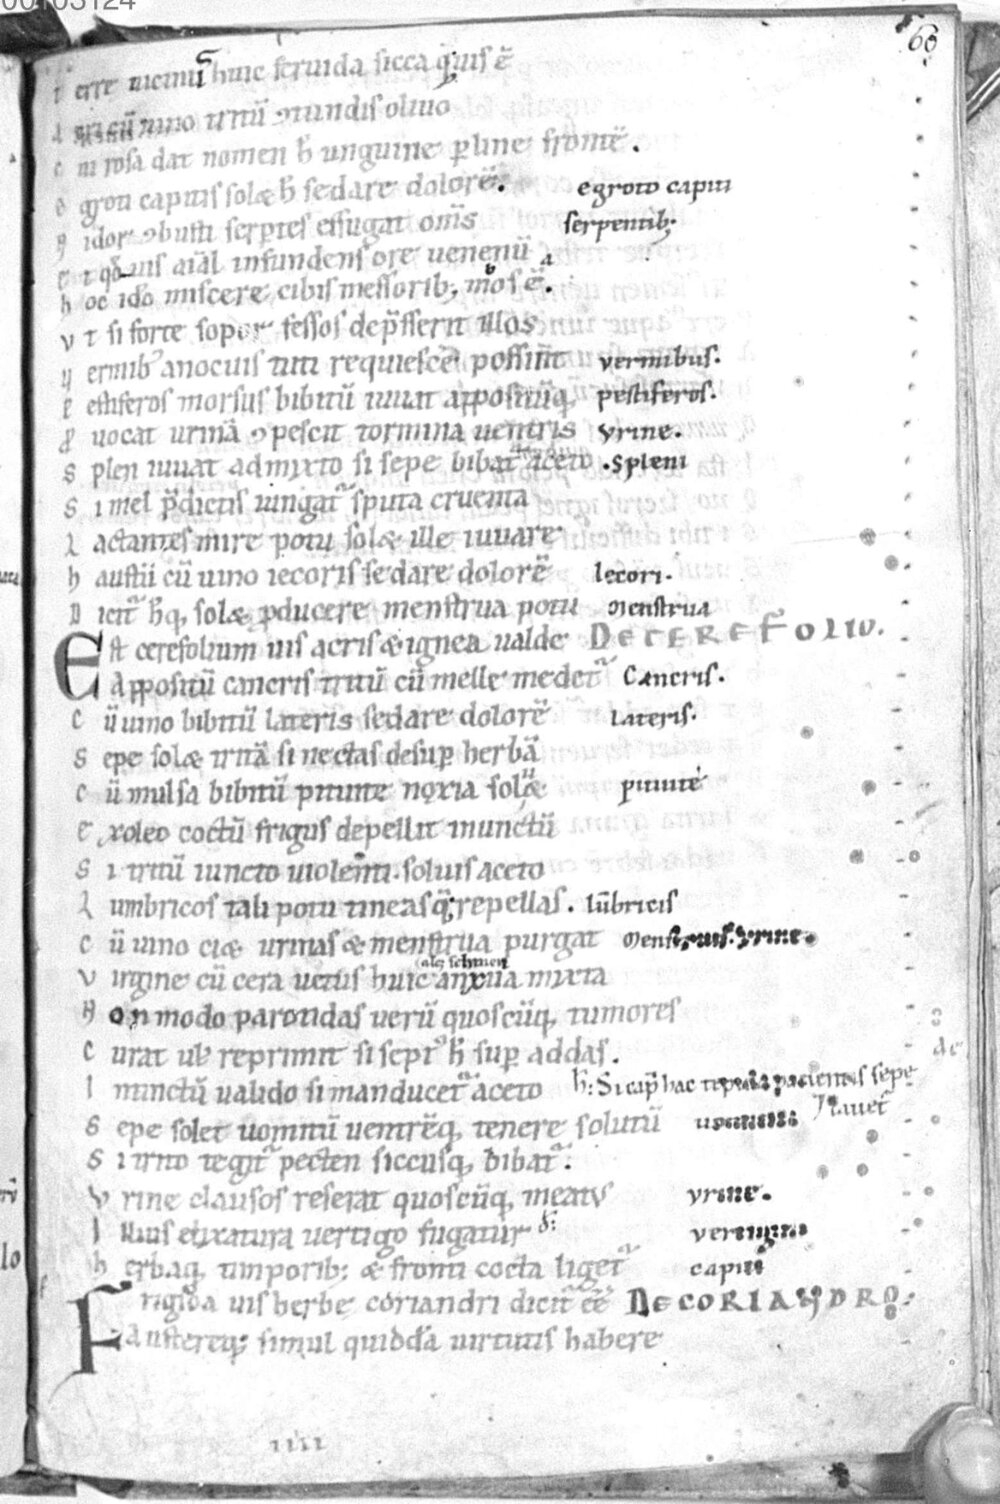 00103124
60
T erre nicinuſ huic feruida ſicca q̄ uiſ ē
cū uino tritū mundiſ oliuo
C ui roſa dat nomen h̄ unguine p̄line frontē.
E groti capitiſ ſolæ h̄ ſedare dolorē. egroto capiti
N idor ꝯbuſti ſerp̄teſ effugat om̄ſ ſerpentib;
E t qd̄ uiſ aīal infundenſ ore uenenū
h oc ido miſcere cibiſ meſſorib; moſ ē.
V t ſi forte ſopor feſſoſ dep̄ſſerit illoſ
V ermib' anocuiſ tuti requieſcē poſſint vermibuſ.
P eſtiferoſ morſuſ bibitū iuuat appoſitūq, peſtiferoſ.
P uocat urinā ꝯpeſcit tormina uentris vrine.
S plen iuuat admixto ſi ſepe bibat' aceto .Spleni
S i mel p̄dictiſ iungat' ſputa cruenta
L actanteſ mire potu ſolæ ille iuuare
h auſtū cū uino iecoriſ ſedare dolorē Iecori.
D icit' h̄q, ſolæ p̄ducere menſtrua potu Menſtrua
Eſt cerefolium uiſ acriſ & ignea ualde DE CEREFOLIO.
Appoſitū cancriſ tritū cū melle medet' Cancriſ.
C ū uino bibitū lateris ſedare dolorē lateriſ.
S epe ſolæ tritā ſi nectaſ deſup herbā
C ū mulſa bibitū pituitæ noxia ſoluæ pituite
E xoleo coctū friguſ depellit inunctū
S i tritū iuncto uiolenti ſoluiſ aceto
L umbricoſ tali potu tineaſq; repellaſ. lūbriciſ
C ū uino ciæ urinaſ & menſtrua purgat Menſtruiſ. Vrine.
V irgine cū cera uetuſ huic anxūa mixta
N on modo parotidaſ uerū quoſcūq, tumoreſ
C urat ul' reprimit ſi ſepi' h̄ ſup addaſ.
I nunctū ualido ſi manducet' aceto
S epe ſolet uomitū uentrēq, tenere ſolutū
S i trito tegit' pecten ſiccuſq, bibat'.
V rine clauſoſ reſerat quoſcūq, meatuſ vrine.
I lliuſ elixatura uertigo fugatur vertigini
h erbaq, timporib; & fronti cocta liget' capiti
Frigida uiſ herbe coriandri dicit' eē DE CORIANDRO:
Auſtereq; ſimul quiddā uirtutiſ habere
IIII